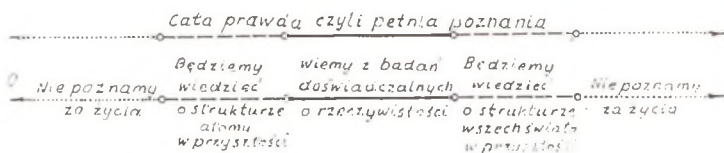 Cała prawda czyli pełnia poznania
Nie poznamy za życia
Będziemy wiedzieć o strukturze atomu w przyszłości
wiemy z badań doświadczalnych o rzeczywistości
Będziemy wiedzieć o strukturze wszechświata w przyszłości
Nie poznamy za życia